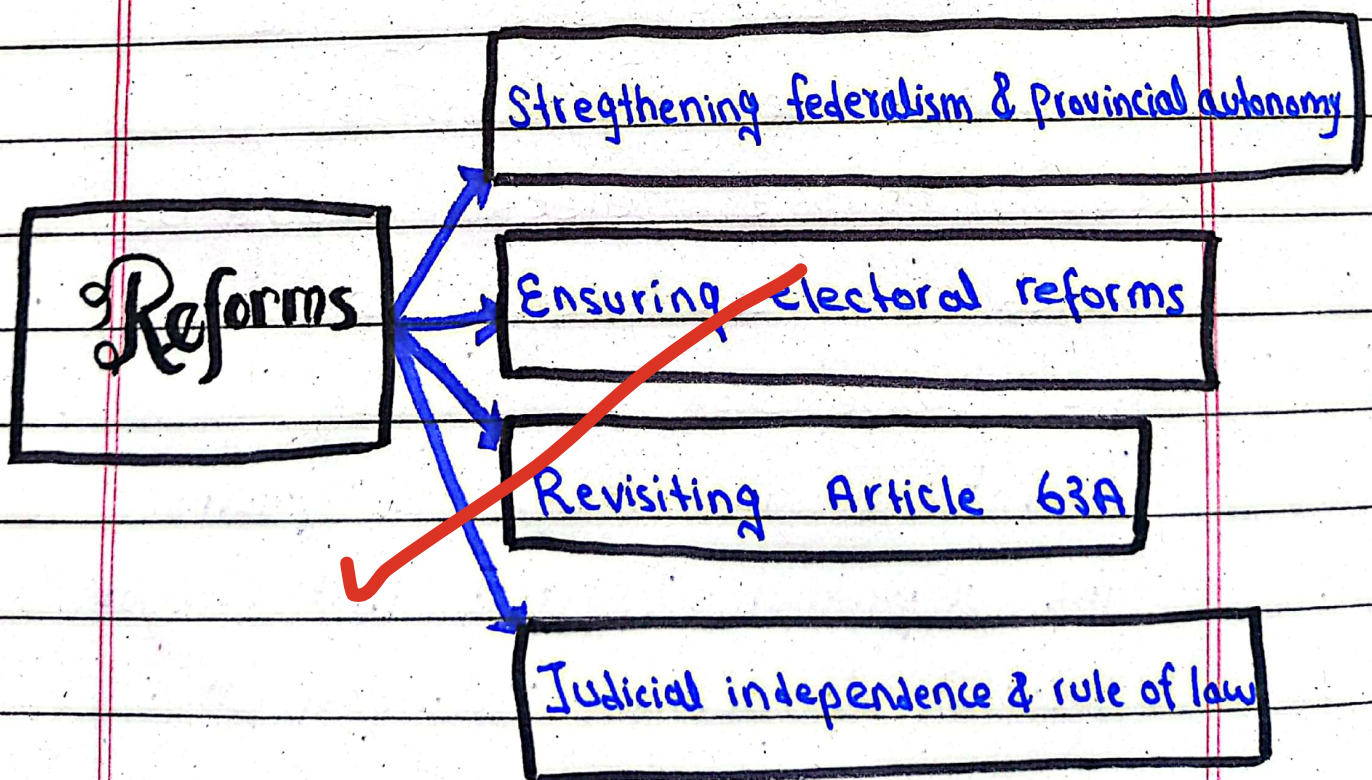 Stregthening federalism & Provincial autonomy
Reforms
Ensuring electoral reforms
Revisiting Article 63A
Judicial independence & rule of law